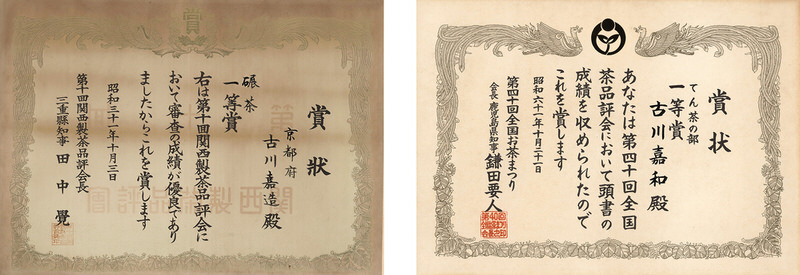 賞
賞狀
京都府
古川嘉造殿
碾茶
一等賞
右は第十回関西製茶品評会に
おいて審査の成績が優良であり
ましたからこれを賞します
昭和三十一年十月三日
第十回関西製茶品評会長
三重縣知事 田中覺
賞状
古川嘉和殿
てん茶の部
一等賞
あなたは第四十回全国
茶品評会において頭書の
成績を収められたので
これを賞します
昭和六十一年十月二十一日
第四十回全国お茶まつり
会長 鹿児島県知事 鎌田要人